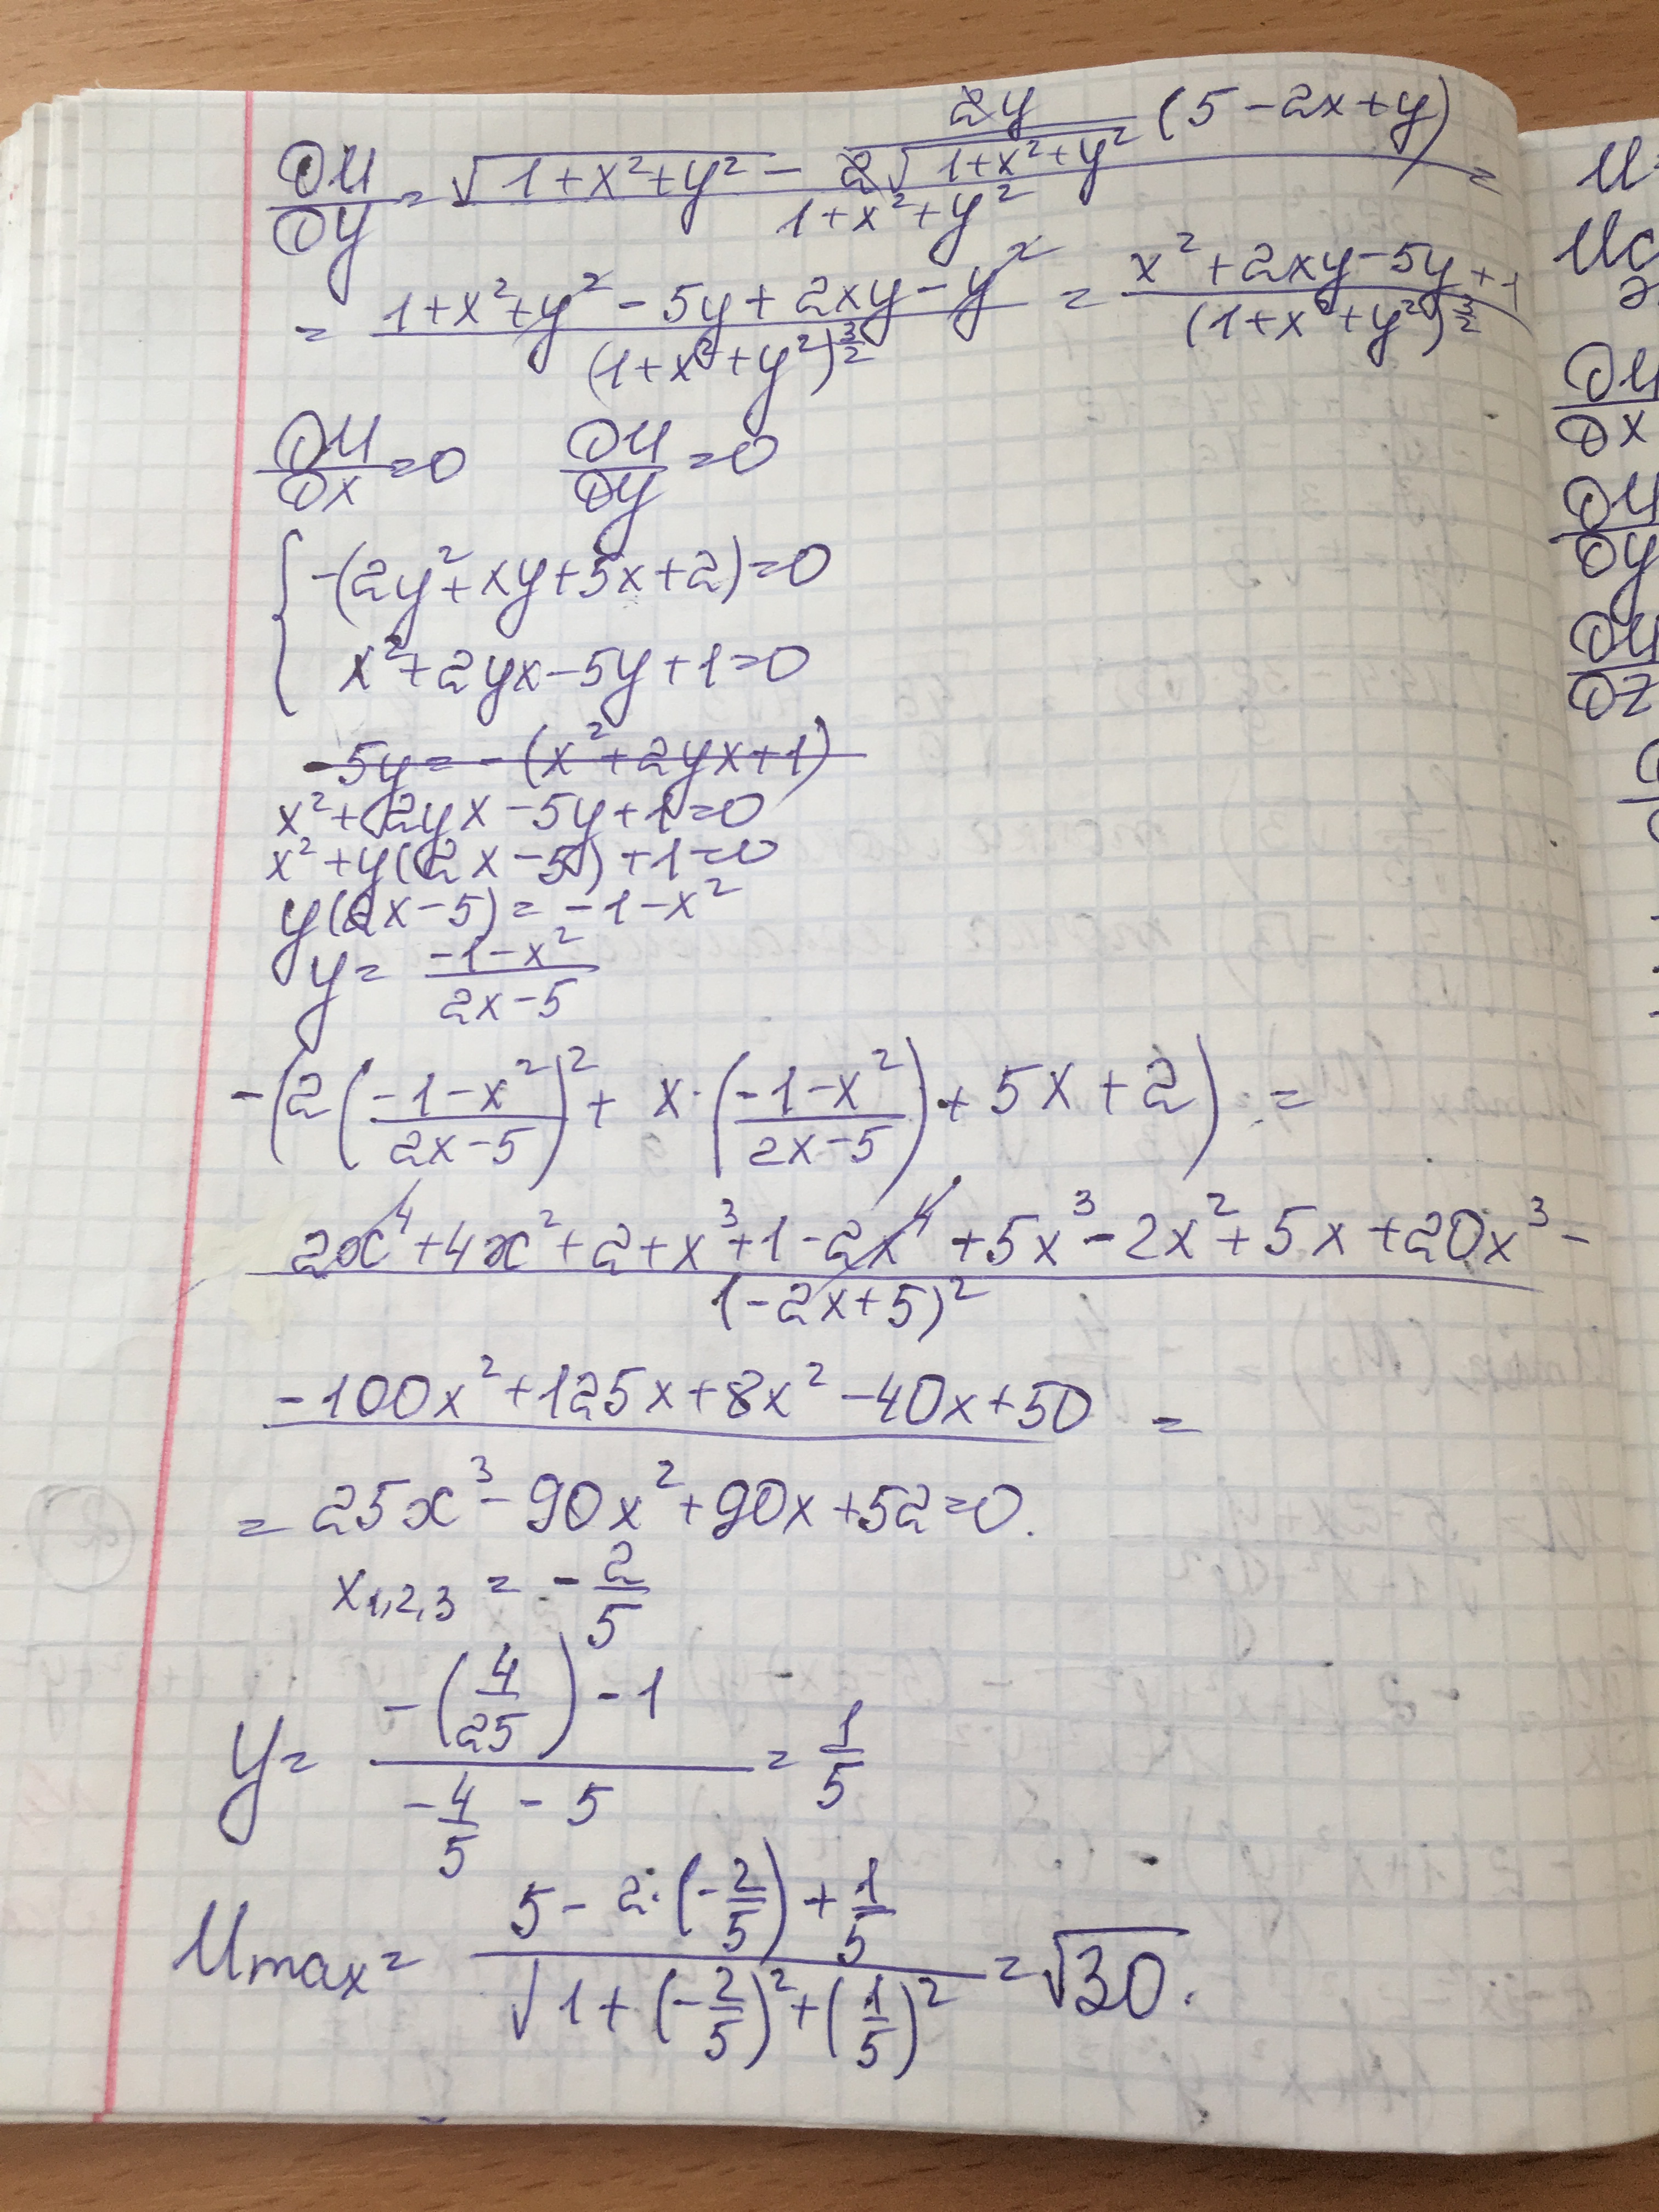 ∂U/∂y = (√(1+x²+y²) − 2y/(2√(1+x²+y²)) (5−2x+y))/(1+x²+y²) =
= (1+x²+y²−5y+2xy−y²)/(1+x²+y²)^(3/2) = (x²+2xy−5y+1)/(1+x²+y²)^(3/2)
∂U/∂x =0 ∂U/∂y =0
{ −(2y²+xy+5x+2)=0
x²+2yx−5y+1=0
−5y=−(x²+2yx+1)
x²+2yx−5y+1=0
x²+y(2x−5)+1=0
y(2x−5)=−1−x²
y= (−1−x²)/(2x−5)
−(2((−1−x²)/(2x−5))²+ x·((−1−x²)/(2x−5))+5x+2) =
(2x⁴+4x²+2+x³+1−2x⁴+5x³−2x²+5x+20x³−)/(−2x+5)²
−100x²+125x+8x²−40x+50 =
= 25x³−90x²+90x+52=0.
x1,2,3 = −2/5
y= (−(4/25)−1)/(−4/5 −5) = 1/5
Umax= (5−2·(−2/5)+1/5)/√(1+(−2/5)²+(1/5)²) =√30.
U=
∂U/∂x
∂U/∂y
∂U/∂z